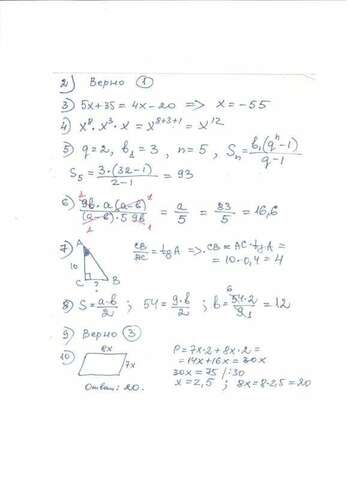 2) Верно ①
3) 5x+35 = 4x-20 => x = -55
4) x⁸ · x³ · x = x⁸⁺³⁺¹ = x¹²
5) q=2, b₁=3, n=5, Sₙ = b₁(qⁿ-1)/q-1
S₅ = 3·(32-1)/2-1 = 93
6) 9b · a(a-b)/(a-b)·5 9b = a/5 = 83/5 = 16,6
7) A CB/AC = tgA => CB = AC·tgA =
10 = 10·0,4 = 4
C ? B
8) S = a·b/2 ; 54 = 9·b/2 ; b = 54·2/9 = 12
9) Верно ③
10) 8x P = 7x·2 + 8x·2 =
7x = 14x+16x = 30x
30x = 75 /:30
Ответ: 20. x = 2,5 ; 8x = 8·2,5 = 20